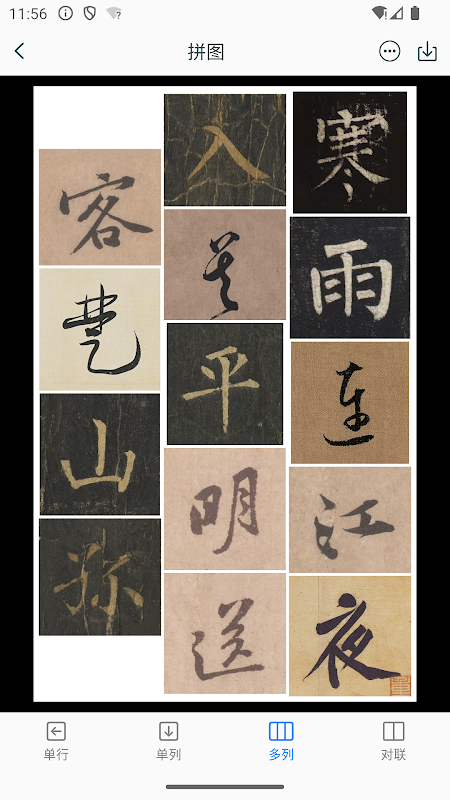 11:56
拼图
寒雨连江夜
入吴平明送
客楚山孤
单行
单列
多列
对联